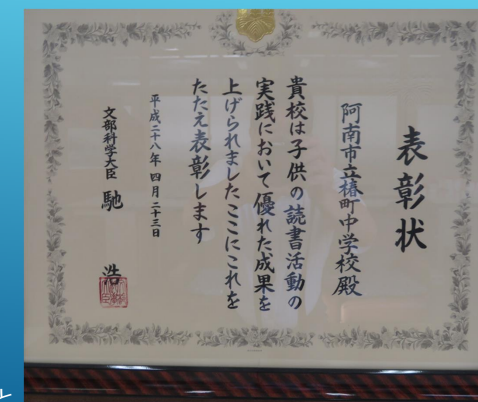 表彰状
阿南市立椿町中学校殿
貴校は子供の読書活動の
実践において優れた成果を
上げられましたここにこれを
たたえ表彰します
平成二十八年四月二十三日
文部科学大臣 馳 浩